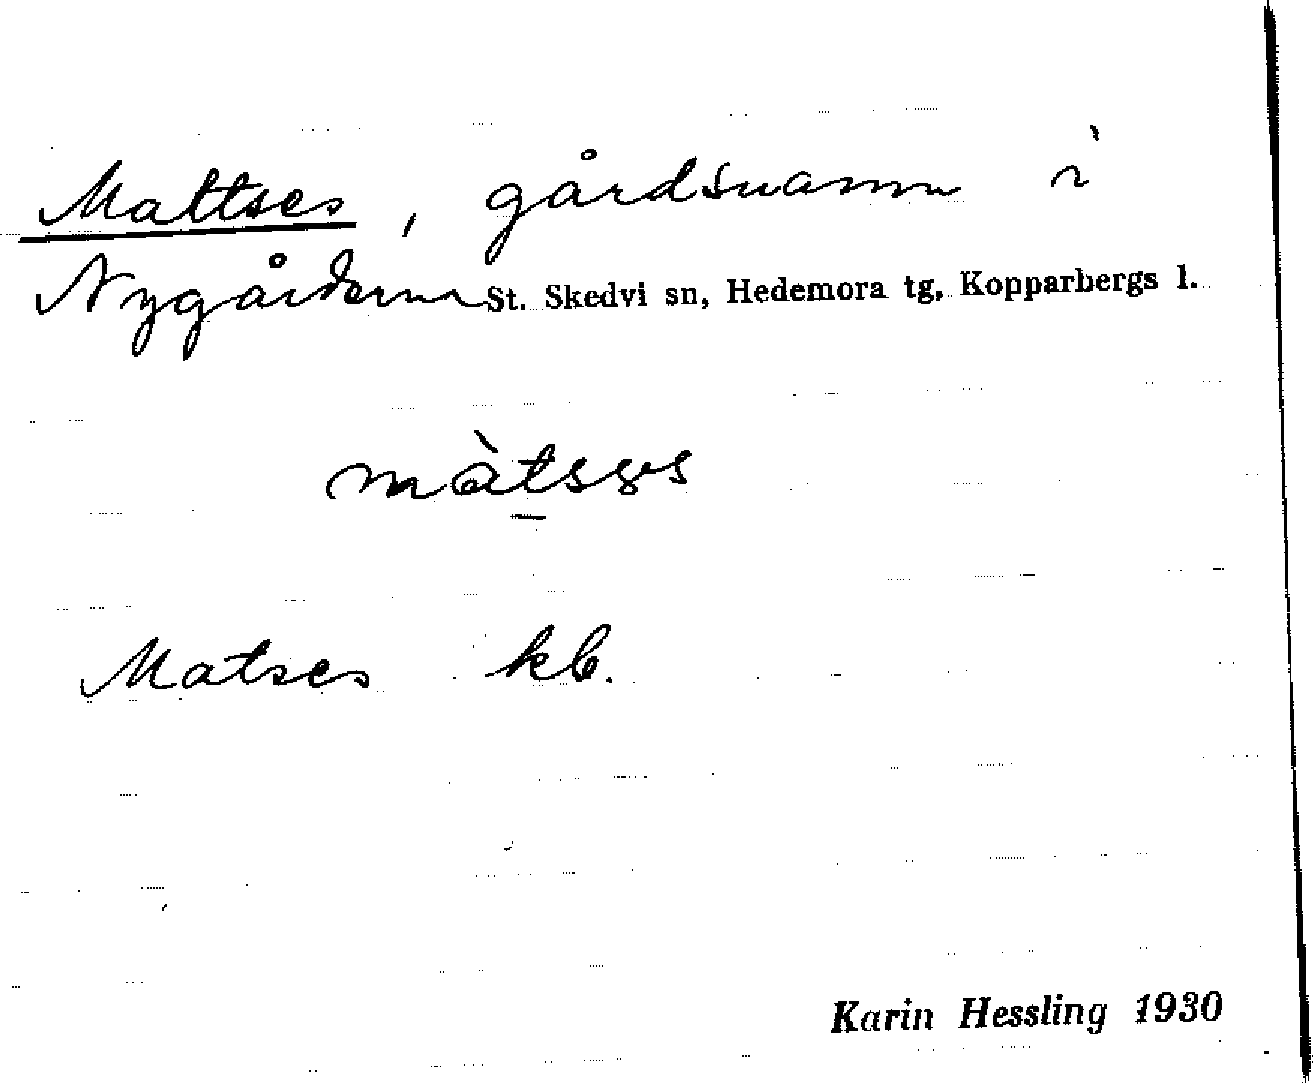 Mattses, gårdsnamn i
Nygårdarna St. Skedvi sn, Hedemora tg, Kopparbergs l.
Matses kb.
Karin Hessling 1930